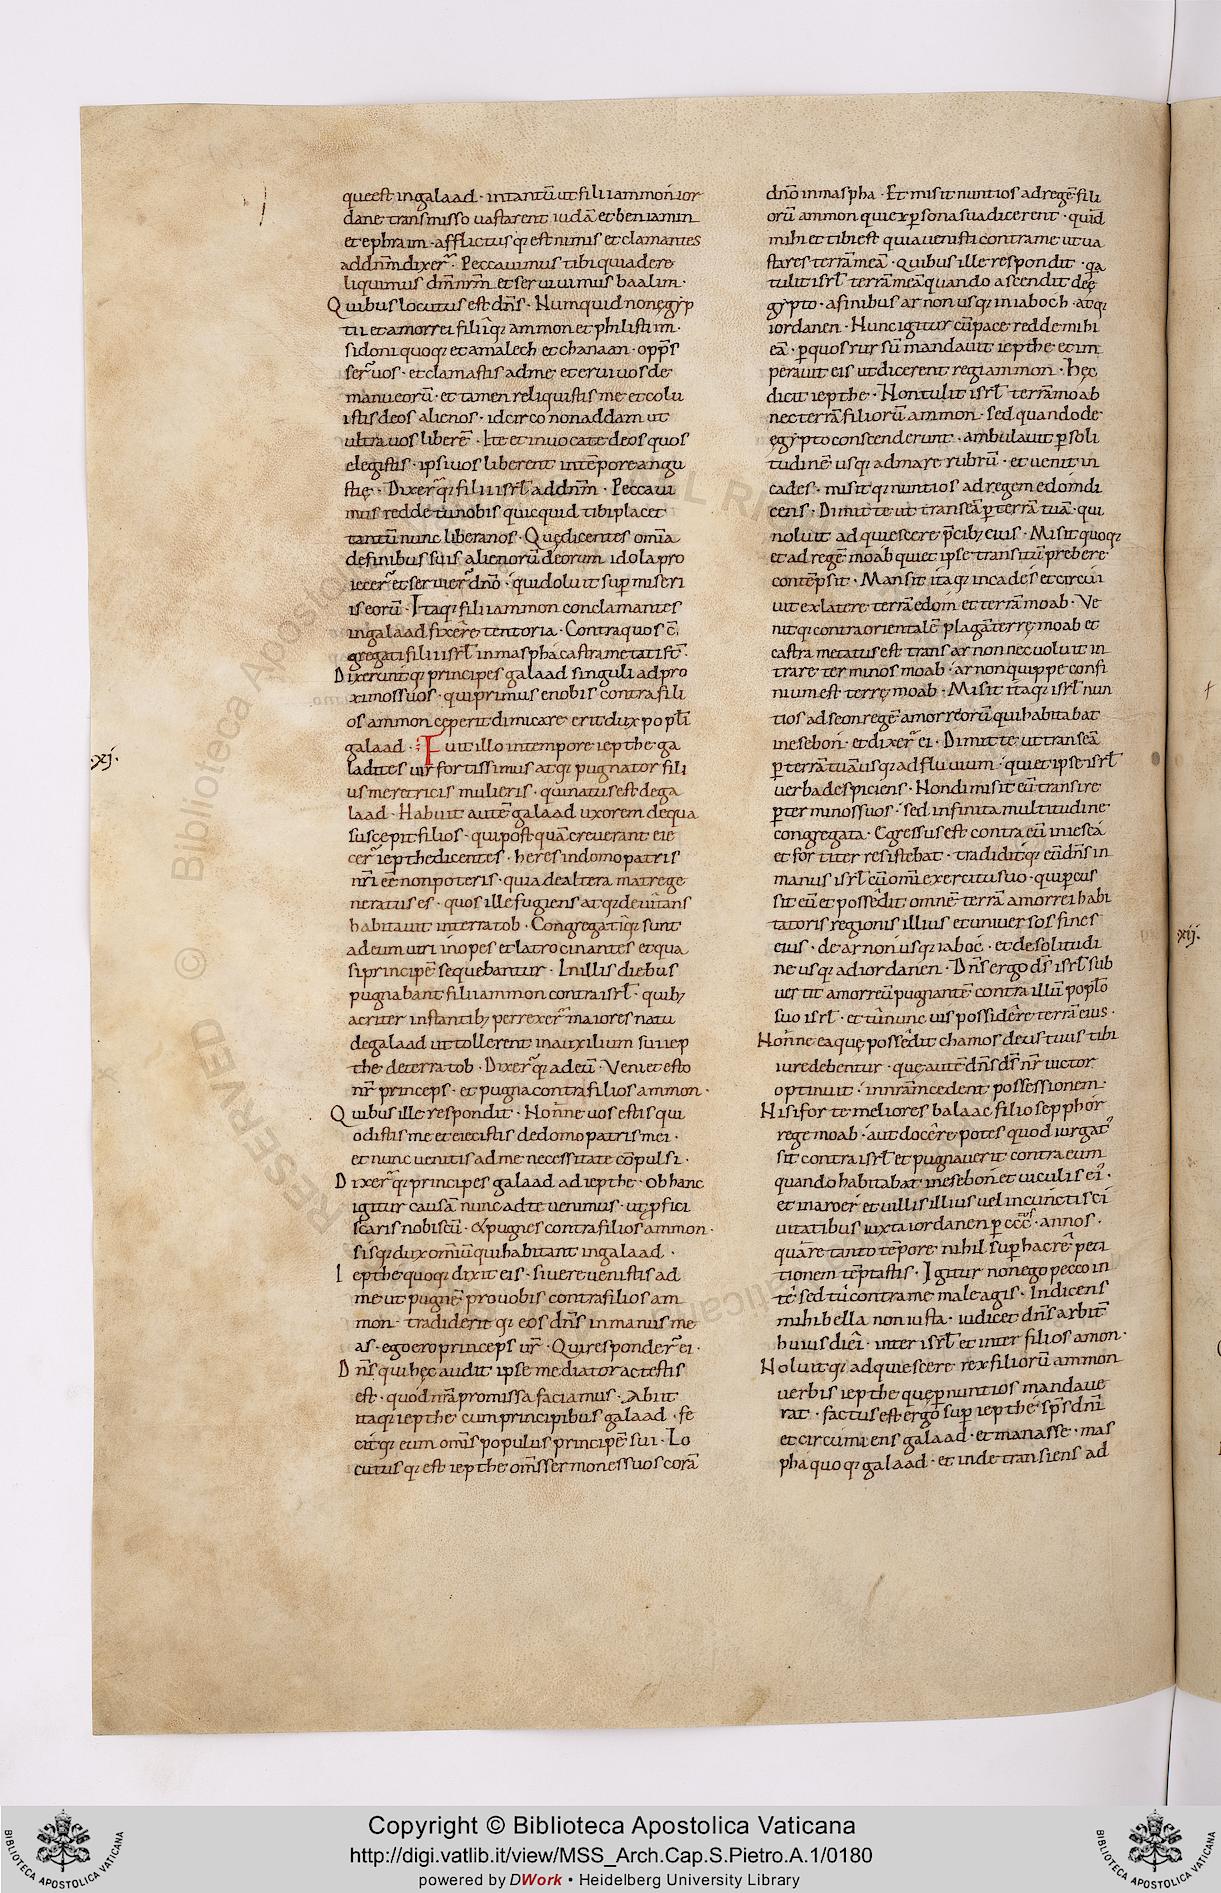 que est in galaad · intantū ut filii ammon ior
dane transmisso uastarent iudā et beniamin
et ephraim · afflictusq; est nimis et clamantes
ad dn̄m dixer̄ · Peccauimus tibi quia dere
liquimus dm̄ nr̄m et seruiuimus baalim ·
Quibus locutus est dn̄s · Numquid non egyp
tii et amorrei filiiq; ammon et philistiim ·
sidonii quoq; et amalech et chanaan · opp̄s
ser̄ uos · et clamastis ad me et erui uos de
manu eorū · et tamen reliquistis me et colu
istis deos alienos · idcirco non addam ut
ultra uos liberē · Ite et inuocate deos quos
elegistis · ipsi uos liberent in tēpore angu
stię · Dixer̄q; filii isrl̄ ad dn̄m · Peccaui
mus redde tu nobis quicquid tibi placet
tantū nunc libera nos · Quę dicentes om̄ia
de finibus suis alienorū deorum idola pro
iecer̄ et seruier̄ dn̄o · qui doluit sup miseri
is eorū · Itaq; filii ammon conclamantes
in galaad fixere tentoria · Contra quos c̄
gregati filii isrl̄ in maspha castrametati st̄ ·
Dixeruntq; principes galaad singuli ad pro
ximos suos · qui primus e nobis contra fili
os ammon ceperit dimicare erit dux popl̄i
galaad · Fuit illo in tempore iepthe ga
·xj·
ladites uir fortissimus atq; pugnator fili
us meretricis mulieris · qui natus est de ga
laad · Habuit autē galaad uxorem de qua
suscepit filios · qui postquā creuerant eie
cer̄ iepthe dicentes · heres in domo patris
nr̄i eē non poteris · quia de altera matre ge
neratus es · quos ille fugiens atq; deuitans
habitauit in terra tob · Congregatiq; sunt
ad eum uiri inopes et latrocinantes et qua
si principē sequebantur · In illis diebus
pugnabant filii ammon contra isrl̄ · quib;
acriter instantib; perrexer̄ maiores natu
de galaad ut tollerent in auxilium sui iep
the de terra tob · Dixer̄q; ad eū · Veni et esto
nr̄ princeps · et pugna contra filios ammon ·
Quibus ille respondit · Nonne uos estis qui
odistis me et eiecistis de domo patris mei ·
et nunc uenitis ad me necessitate cōpulsi ·
Dixer̄q; principes galaad ad iepthe · Ob hanc
igitur causā nunc ad te uenimus · ut pfici
scaris nobiscū · et pugnes contra filios ammon ·
sisq; dux om̄iū qui habitant in galaad ·
Iepthe quoq; dixit eis · si uere uenistis ad
me ut pugnē pro uobis contra filios am
mon · tradideritq; eos dn̄s in manus me
as · ego ero princeps ur̄ · Qui responder̄ ei ·
Dn̄s qui hęc audit ipse mediator ac testis
est · quod nr̄a promissa faciamus · Abiit
itaq; iepthe cum principibus galaad · fe
citq; eum om̄is populus principē sui · Lo
cutusq; est iepthe om̄s sermones suos corā
dn̄o in maspha · Et misit nuntios ad regē fili
orū ammon qui ex p̱sona sua dicerent · quid
mihi et tibi est quia uenisti contra me ut ua
stares terrā meā · Quibus ille respondit · qa
tulit isrl̄ terrā meā quando ascendit de ę
gypto · a finibus arnon usq; in iaboch · atq;
iordanen · Nunc igitur cū pace redde mihi
eā · p̱ quos rursū mandauit iepthe et im
perauit eis ut dicerent regi ammon · hęc
dicit iepthe · Non tulit isrl̄ terrā moab
nec terrā filiorū ammon · sed quando de
ęgypto conscenderunt · ambulauit p̱ soli
tudinē usq; ad mare rubrū · et uenit in
cades · misitq; nuntios ad regem edom di
cens · Dimitte ut transeā p̱ terrā tuā · qui
noluit adquiescere p̄cib; eius · Misit quoq;
et ad regē moab qui et ipse transitū prebere
contēpsit · Mansit itaq; in cades et circui
uit ex latere terrā edom et terrā moab · Ve
nitq; contra orientalē plagā terrę moab et
castrametatus est trans arnon nec uoluit in
trare terminos moab · arnon quippe confi
nium est terrę moab · Misit itaq; isrl̄ nun
tios ad seon regē amorreorū qui habitabat
in esebon · et dixer̄ ei · Dimitte ut transeā
p̱ terrā tuā usq; ad fluuium · qui et ipse isrl̄
uerba despiciens · Non dimisit eū transire
p̱ terminos suos · sed infinita multitudine
congregata · Egressus est contra eū in iesca
et fortiter resistebat · tradiditq; eū dn̄s in
manus isrl̄ cū om̄i exercitu suo · qui p̱cus
sit eū et possedit omnē terrā amorrei habi
tatoris regionis illius et uniuersos fines
eius · de arnon usq; iaboc · et de solitudi
xij·
ne usq; ad iordanen · Dn̄s ergo ds̄ isrl̄ sub
uertit amorreū pugnantē contra illū poplo
suo isrl̄ · et tu nunc uis possidere terrā eius ·
Nonne ea quę possedit chamos deus tuus tibi
iure debentur · quę autē dn̄s ds̄ nr̄ uictor
optinuit · in nr̄am cedent possessionem ·
Nisi forte meliores balaac filio sepphor
rege moab · aut docere potes quod iurgat᾽
sit contra isrl̄ et pugnauerit contra eum
quando habitabat in esebon et uiculis ei᾽ ·
et in aroer et uillis illius uel in cunctis ci
uitatibus iuxta iordanen p̱ ccc · annos ·
quare tanto tēpore nihil sup hac rē peti
tionem tēptastis · Igitur non ego pecco in
te sed tu contra me male agis · Indicens
mihi bella non iusta · iudicet dn̄s arbit̄
huius diei · inter isrl̄ et inter filios amon ·
Noluitq; adquiescere rex filiorū ammon
uerbis iepthe quę p̱ nuntios mandaue
rat · factus est ergo sup iepthe sp̄s dn̄i
et circumiens galaad · et manasse · mas
pha quoq; galaad · et inde transiens ad
Copyright © Biblioteca Apostolica Vaticana
http://digi.vatlib.it/view/MSS_Arch.Cap.S.Pietro.A.1/0180
powered by DWork • Heidelberg University Library
BIBLIOTECA APOSTOLICA VATICANA
BIBLIOTECA APOSTOLICA VATICANA